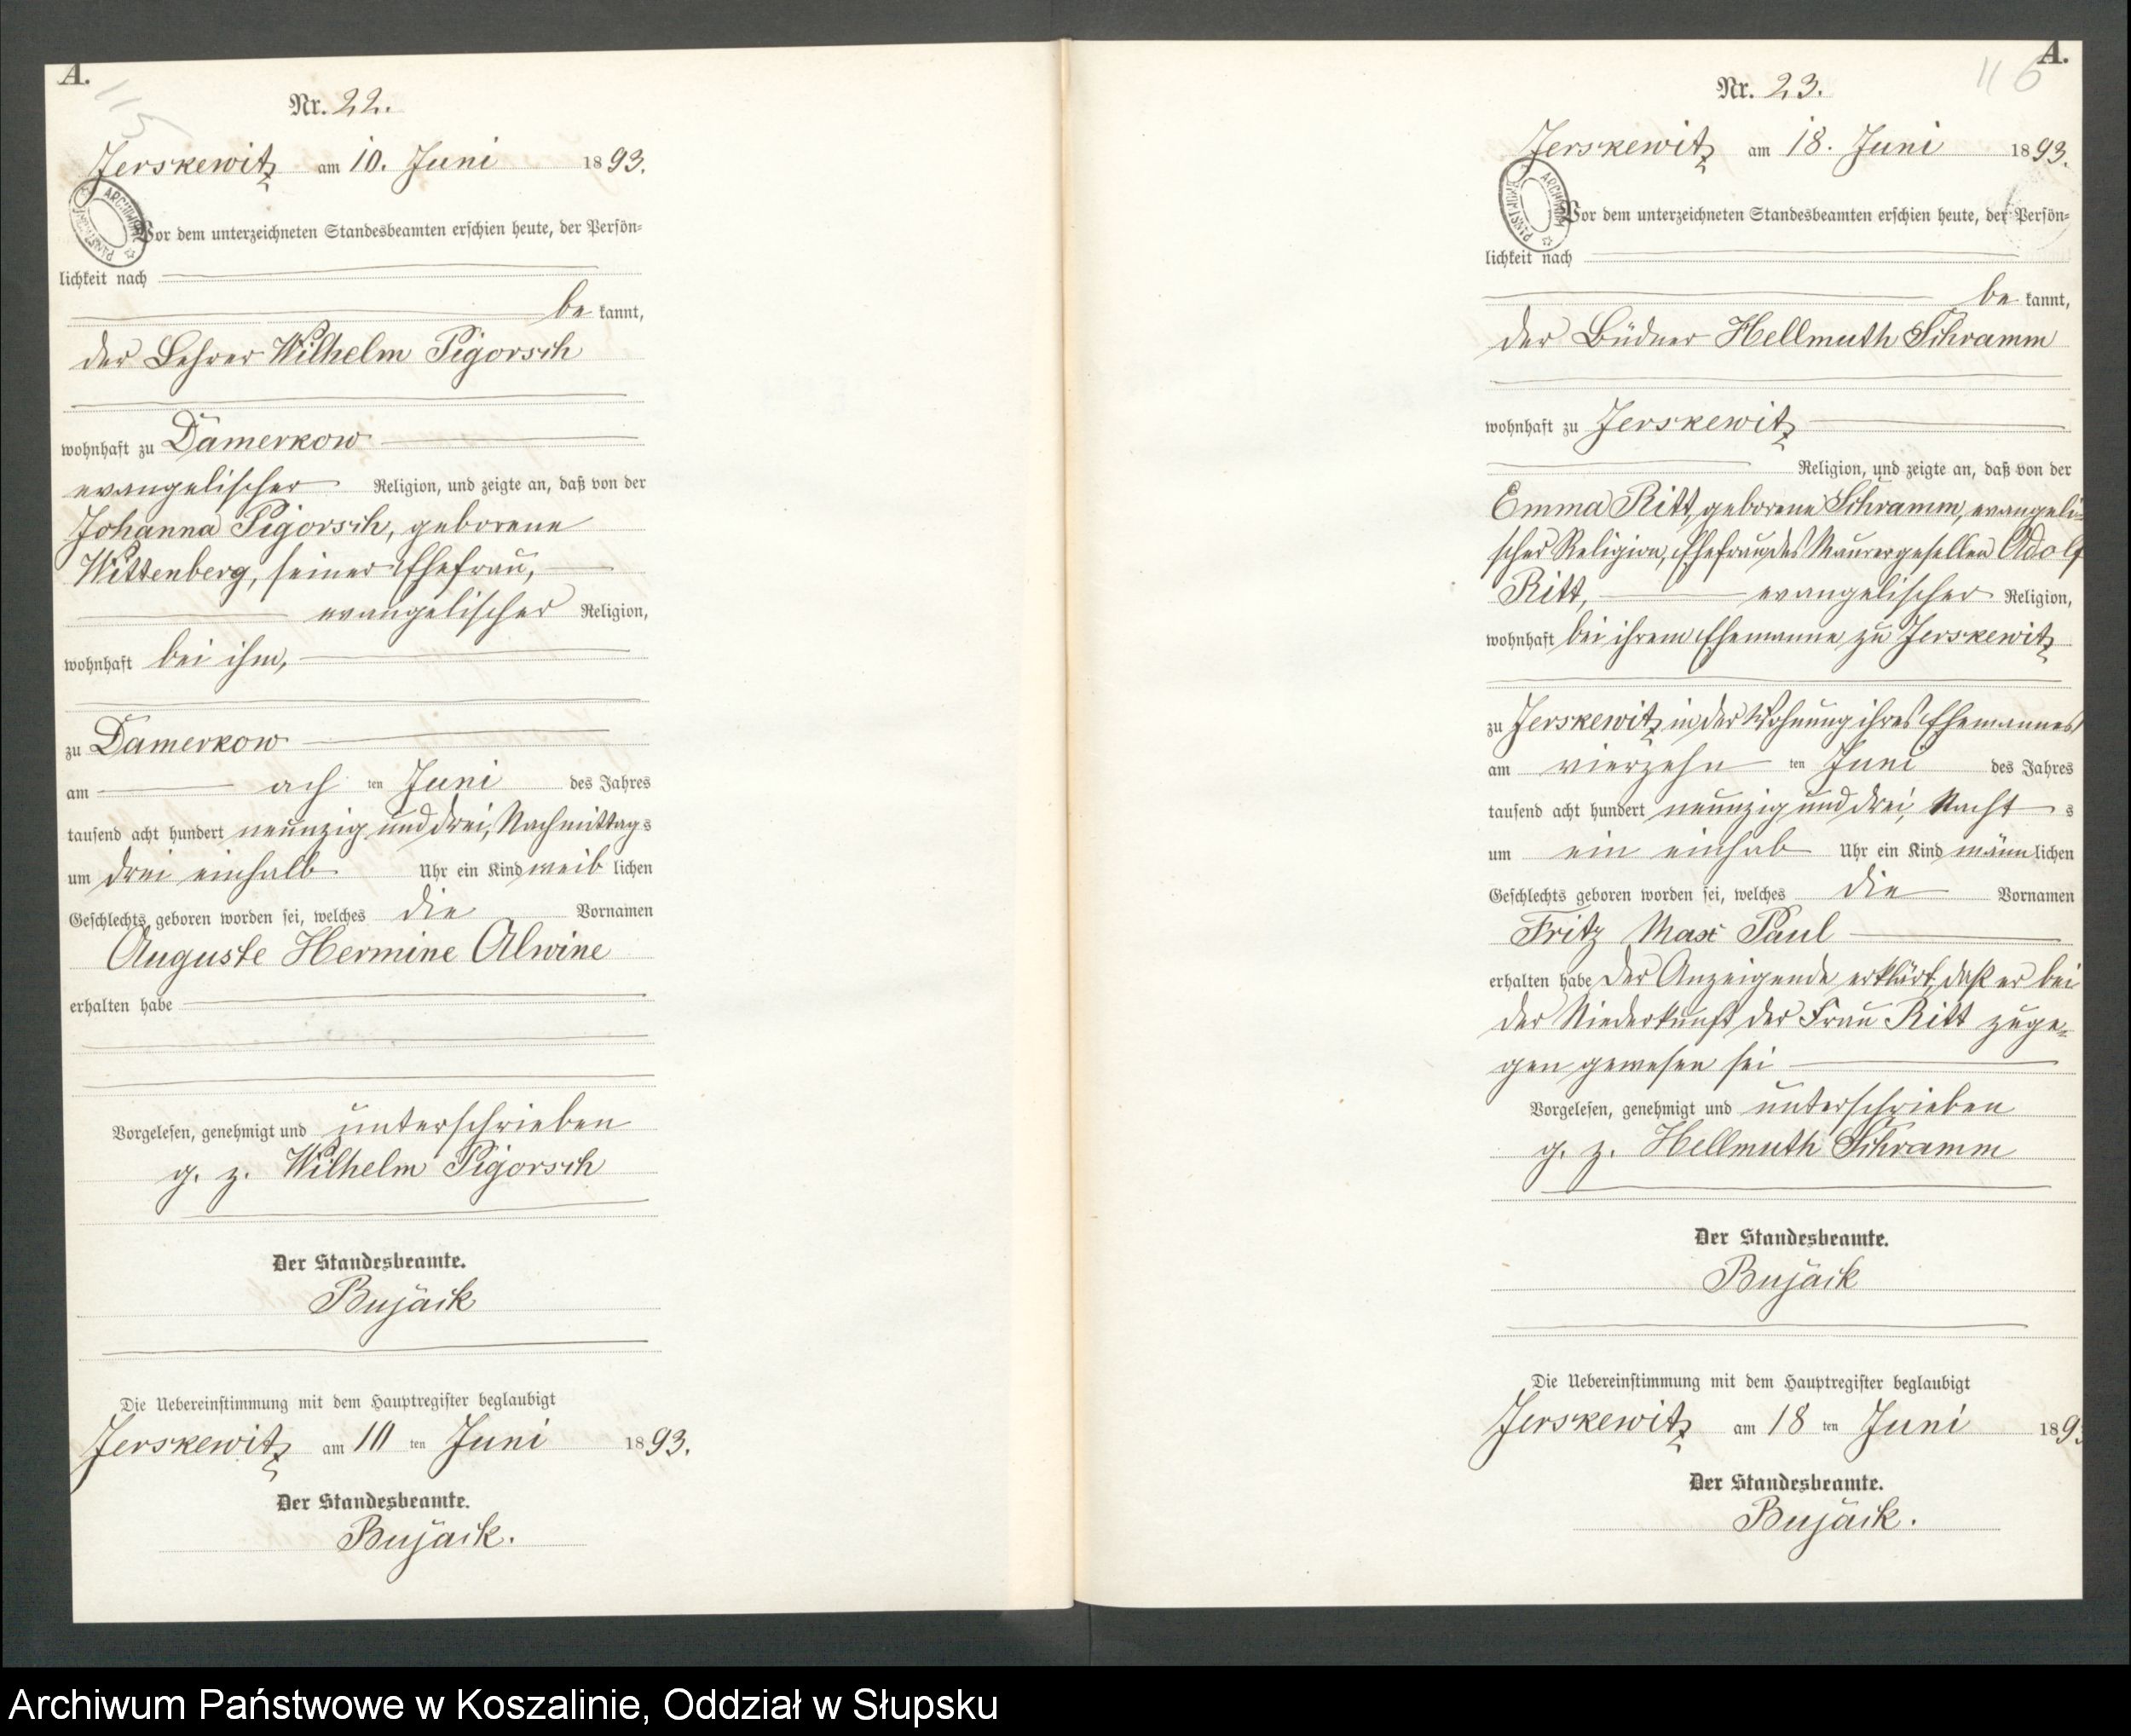 A.
115
Nr. 22.
Jerskewitz am 10. Juni 1893.
Vor dem unterzeichneten Standesbeamten erschien heute, der Persön-
lichkeit nach
be kannt,
der Lehrer Wilhelm Pigorsch
wohnhaft zu Damerkow
evangelischer Religion, und zeigte an, daß von der
Johanna Pigorsch, geborene
Wittenberg, seiner Ehefrau,
evangelischer Religion,
wohnhaft bei ihm,
zu Damerkow
am ach ten Juni des Jahres
tausend acht hundert neunzig und drei, Nachmittags
um drei einhalb Uhr ein Kind weib lichen
Geschlechts geboren worden sei, welches die Vornamen
Auguste Hermine Alwine
erhalten habe
Vorgelesen, genehmigt und unterschrieben
g. z. Wilhelm Pigorsch
Der Standesbeamte.
Bujack
Die Uebereinstimmung mit dem Hauptregister beglaubigt
Jerskewitz am 10 ten Juni 1893.
Der Standesbeamte.
Bujack.
A.
116
Nr. 23.
Jerskewitz am 18. Juni 1893.
ARCHIWUM PAŃSTWOWE
Vor dem unterzeichneten Standesbeamten erschien heute, der Persön-
lichkeit nach
be kannt,
der Büdner Hellmuth Schramm
wohnhaft zu Jerskewitz
Religion, und zeigte an, daß von der
Emma Ritt, geborene Schramm, evangeli-
scher Religion, Ehefrau des Maurergesellen Adolf
Ritt, evangelischer Religion,
wohnhaft bei ihrem Ehemanne zu Jerskewitz
zu Jerskewitz in der Wohnung ihres Ehemannes
am vierzehn ten Juni des Jahres
tausend acht hundert neunzig und drei, Nacht s
um ein einhalb Uhr ein Kind männlichen
Geschlechts geboren worden sei, welches die Vornamen
Fritz Max Paul
erhalten habe Der Anzeigende erklärt, daß er bei
der Niederkunft der Frau Ritt zuge-
gen gewesen sei
Vorgelesen, genehmigt und unterschrieben
g. z. Hellmuth Schramm
Der Standesbeamte.
Bujack
Die Uebereinstimmung mit dem Hauptregister beglaubigt
Jerskewitz am 18 ten Juni 189
Der Standesbeamte.
Bujack.
Archiwum Państwowe w Koszalinie, Oddział w Słupsku